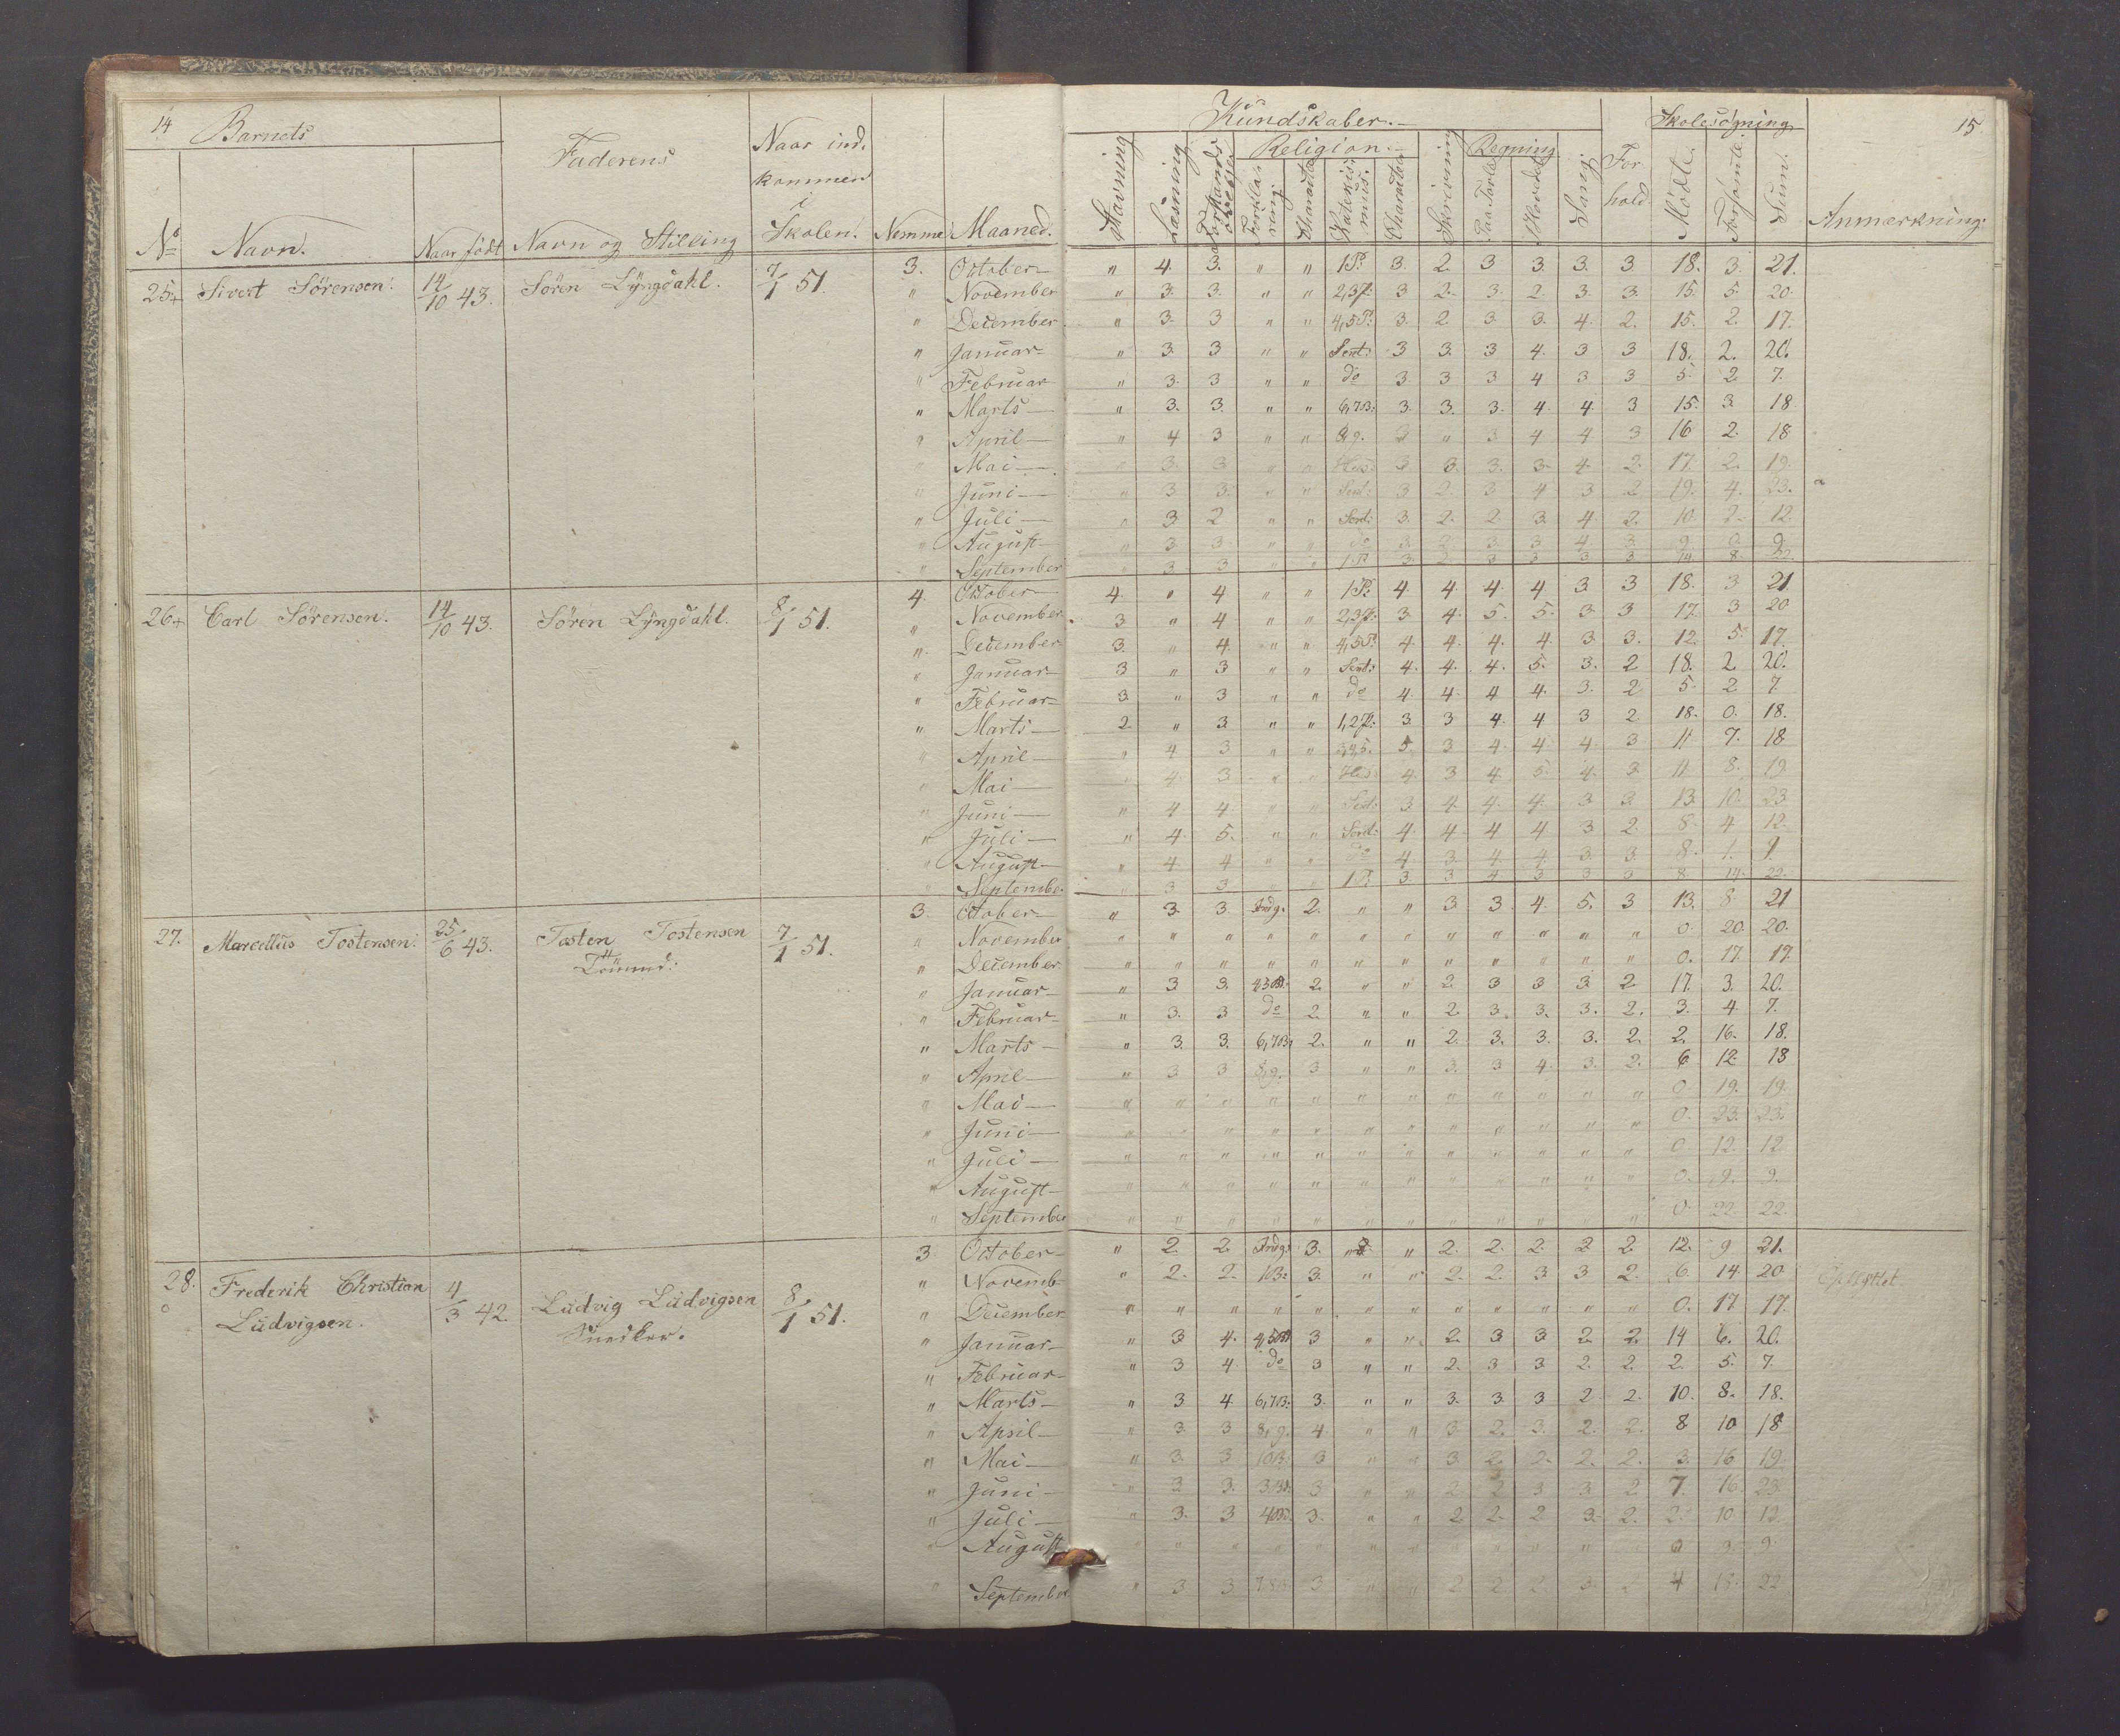 14 Barnets Faderens Naar ind.
kommen
i
Skolen. Nemme Maaned.
No Navn. Naar født Navn og Stilling
Kundskaber.
Skolesøgning 15.
Religion. Regning
Stavning Læsning Forstands øvelse Forklaring Charakter Katekismus. Charakter Skrivning Paa Tavle Hovedet Sang Forhold Mødte. Forsømte Sum. Anmærkning:
25+ Sivert Sørensen. 14/10 43. Søren Lyngdahl. 7/1 51. 3. October " 4. 3. " " 1P: 3. 2. 3 3. 3. 3. 18. 3. 21.
" November " 3. 3. " " 2,3P: 3 2. 3. 2. 3. 3. 15. 5. 20.
" December " 3. 3 " " 4,5P: 3. 2 3. 3. 4. 2. 15. 2. 17.
" Januar " 3. 3 " " Sent: 3 3. 3 4. 3 3 18. 2. 20.
" Februar " 3. 3 " " do 3 3 3 4 3 3 5. 2 7.
" Marts " 3. 3. " " 6,7B: 3. 3. 3. 4. 4. 3 15. 3. 18
" April " 4 3 " " 8,9. 3 " 3 4 4 3 16 2. 18
" Mai " 3. 3 " " 3. 3. 3. 3. 4. 2. 17. 2. 19.
" Juni " 3 3. " " Sent: 3 2. 3 4 3 2 19. 4. 23.
" Juli " 3 2 " " Sent: 3. 2. 2. 3. 4. 2. 10. 2. 12.
" August " 3. 3. " " do 3. 2 3. 3 4. 3. 9. 0. 9.
" September " 3. 3 " " 1P: 3. 2. 3 3 3 3 14 8. 22.
26+ Carl Sørensen. 14/10 43. Søren Lyngdahl. 8/1 51. 4. October 4. " 4 " " 1P: 4. 4. 4. 4 3 3 18. 3 21
" November 3 " 4 " " 2,3P: 3 4. 5. 5. 3 3 17. 3 20
" December 3. " 4. " " 4,5P: 4. 4. 4. 4. 3. 3. 12. 5. 17.
" Januar 3 " 3 " " Sent: 4. 4. 4. 5. 3. 2 18. 2 20.
" Februar 3. " 3 " " do 4. 4. 4 4. 3. 2 5. 2 7.
" Marts 2. " 3. " " 1,2P: 3. 3 4 4 3 2. 18. 0. 18.
" April " 4 3 " " 3,4,5. 5. 3 4. 4. 4. 3 11 7. 18
" Mai " 4. 3 " " 4. 3 4. 5. 4. 3. 11. 8. 19.
" Juni " 4 4 " " Sent: 3. 4. 4. 4. 3 3 13. 10. 23
" Juli " 4. 5. " " Sent: 4. 4. 4 4 3 2. 8. 4 12.
" August " 4. 4 " " do 4 3. 4. 4. 3. 3. 8. 1. 9.
" September " 3 3 " " 1P: 3. 3 4 3 3 3 8. 14. 22.
27. Marcellus Tostensen. 25/6 43. Tosten Tostensen 7/1 51. 3. October " 3. 3. 2. " " 3. 3. 4. 5. 3 13. 8 21
" November " " " " " " " " " " " " 0. 20. 20.
" December " " " " " " " " " " " " 0. 17. 17.
" Januar " 3 3. 2. " " 2. 3 3 3 2. 17. 3. 20.
" Februar " 3. 3 do 2. " " 2. 3. 3. 3. 2. 3. 4. 7.
" Marts " 3. 3. 6,7B: 2. " " 2. 3. 3. 3. 2. 2. 16. 18.
" April " 3 3 8,9. 3 " " 3. 3 4. 3. 2. 6 12. 18
" Mai " " " " " " " " " " " " 0. 19. 19.
" Juni " " " " " " " " " " " " 0. 23. 23.
" Juli " " " " " " " " " " " " 0. 12. 12.
" August " " " " " " " " " " " " 0. 9. 9.
" September " " " " " " " " " " " " 0. 22. 22.
28. Frederik Christian Ludvigsen. 4/3 42 Ludvig Ludvigsen Snedker. 8/1 51. 3. October " 2. 2. 3. " " 2. 2. 2. 2 2. 12. 9 21.
" Novemb " 2. 2. 10B: 3. " " 2. 2. 3 3 2. 6. 14 20
" December " " " " " " " " " " " " 0. 17 17.
" Januar " 3 4. 3 " " 2. 3 3 2. 2. 14 6. 20.
" Februar " 3 4. do 3 " " 2. 3 3 2. 2. 2. 5. 7.
" Marts " 3 4 6,7B: 3. " " 3. 3. 3 2 2. 10. 8. 18.
" April " 3. 3 8,9. 4 " " 3 2. 3. 2. 2. 8 10 18
" Mai " 3. 3 10B: 3 " " 3. 2. 2. 2. 2. 3. 16 19
" Juni " 3 3. 3 " " 2 2 3 3. 2 7. 16. 23.
" Juli " 3. 3 3. " " 2 2. 2 3. 2. 2. 10 12.
" August " " " " " " " " " " " " 0 9. 9.
" September " 3 3 3 " " 2 2 2. 3. 4 18. 22